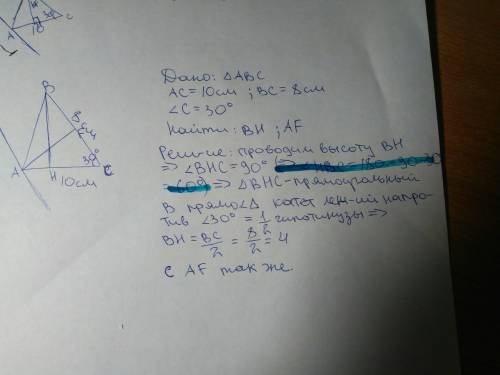 A
10
30°
C
B
8см
30°
A
H
10см
C
Дано: △ABC
AC=10см ; BC=8см
∠C=30°
Найти: BH ; AF
Решение: проводим высоту BH
⇒ ∠BHC=90°
=60°) ⇒ △BHC-прямоугольный
В прямо∠△ катет леж-ий напро-
тив ∠30° = 1/2 гипотинузы ⇒
BH = BC/2 = 8/2 = 4
С AF так же.